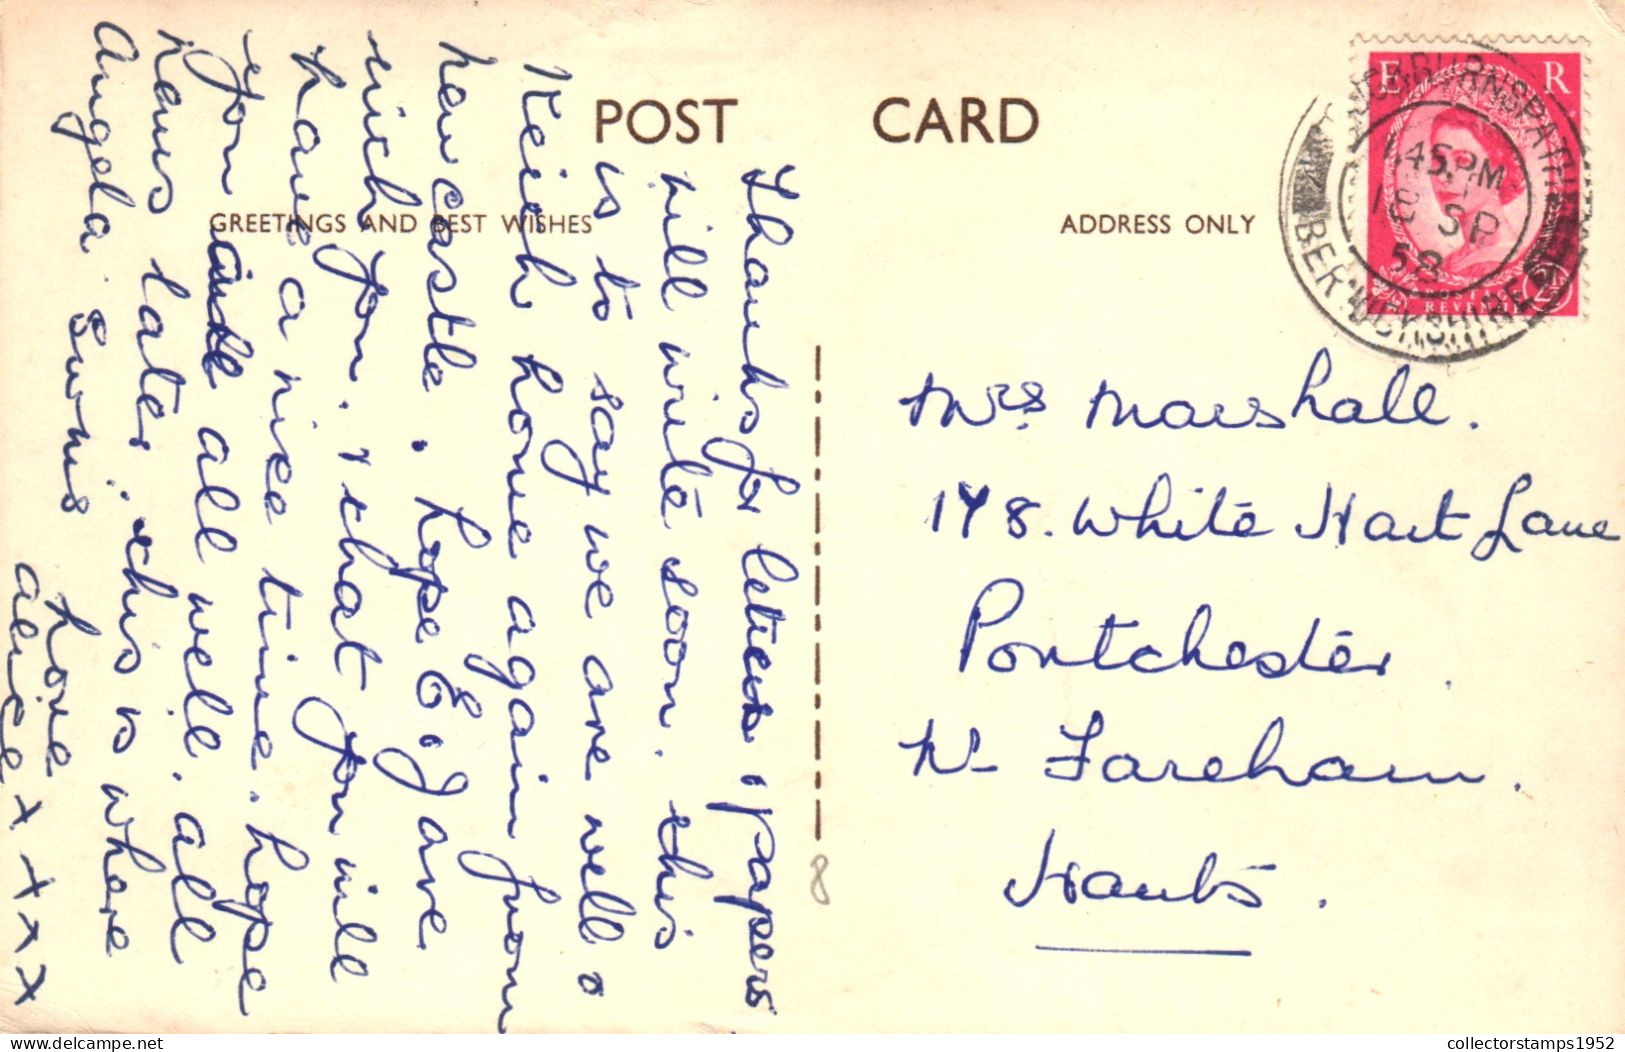 POST CARD
GREETINGS AND BEST WISHES
ADDRESS ONLY
E R
COCKBURNSPATH
1.45 PM
18 SP
58
BERWICKSHIRE
REVENUE
Thanks for letter, papers
will write soon. this
is to say we are well &
Keith home again from
Newcastle. hope E. & J are
with you. & that you will
have a nice time. hope
you are all well. all
news later. this is where
Angela swims
love
alice x x x x
Mrs Marshall.
148. White Hart Lane
Portchester.
Nr Fareham.
Hants.
8
collectorstamps1952